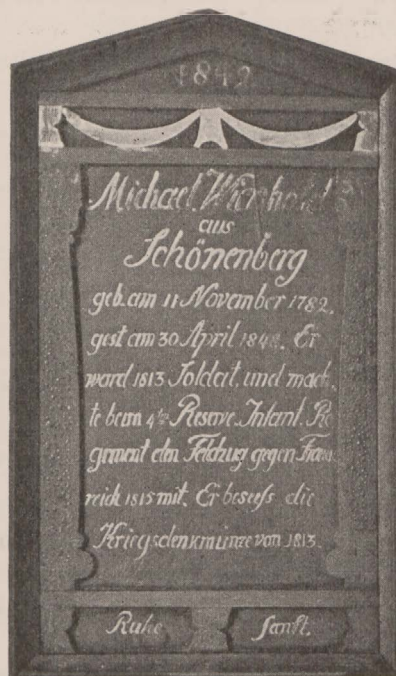 1842
Michael
aus
Schönenberg
geb. am 11 November 1782.
gest am 30 April Er
ward 1813 Soldat. und mach-
te beim 4ten Reserve. Infant. Re
giment den Feldzug gegen Frank
reich 1815 mit. Er besess die
Kriegsdenkmünze von 1813.
Ruhe Sanft.